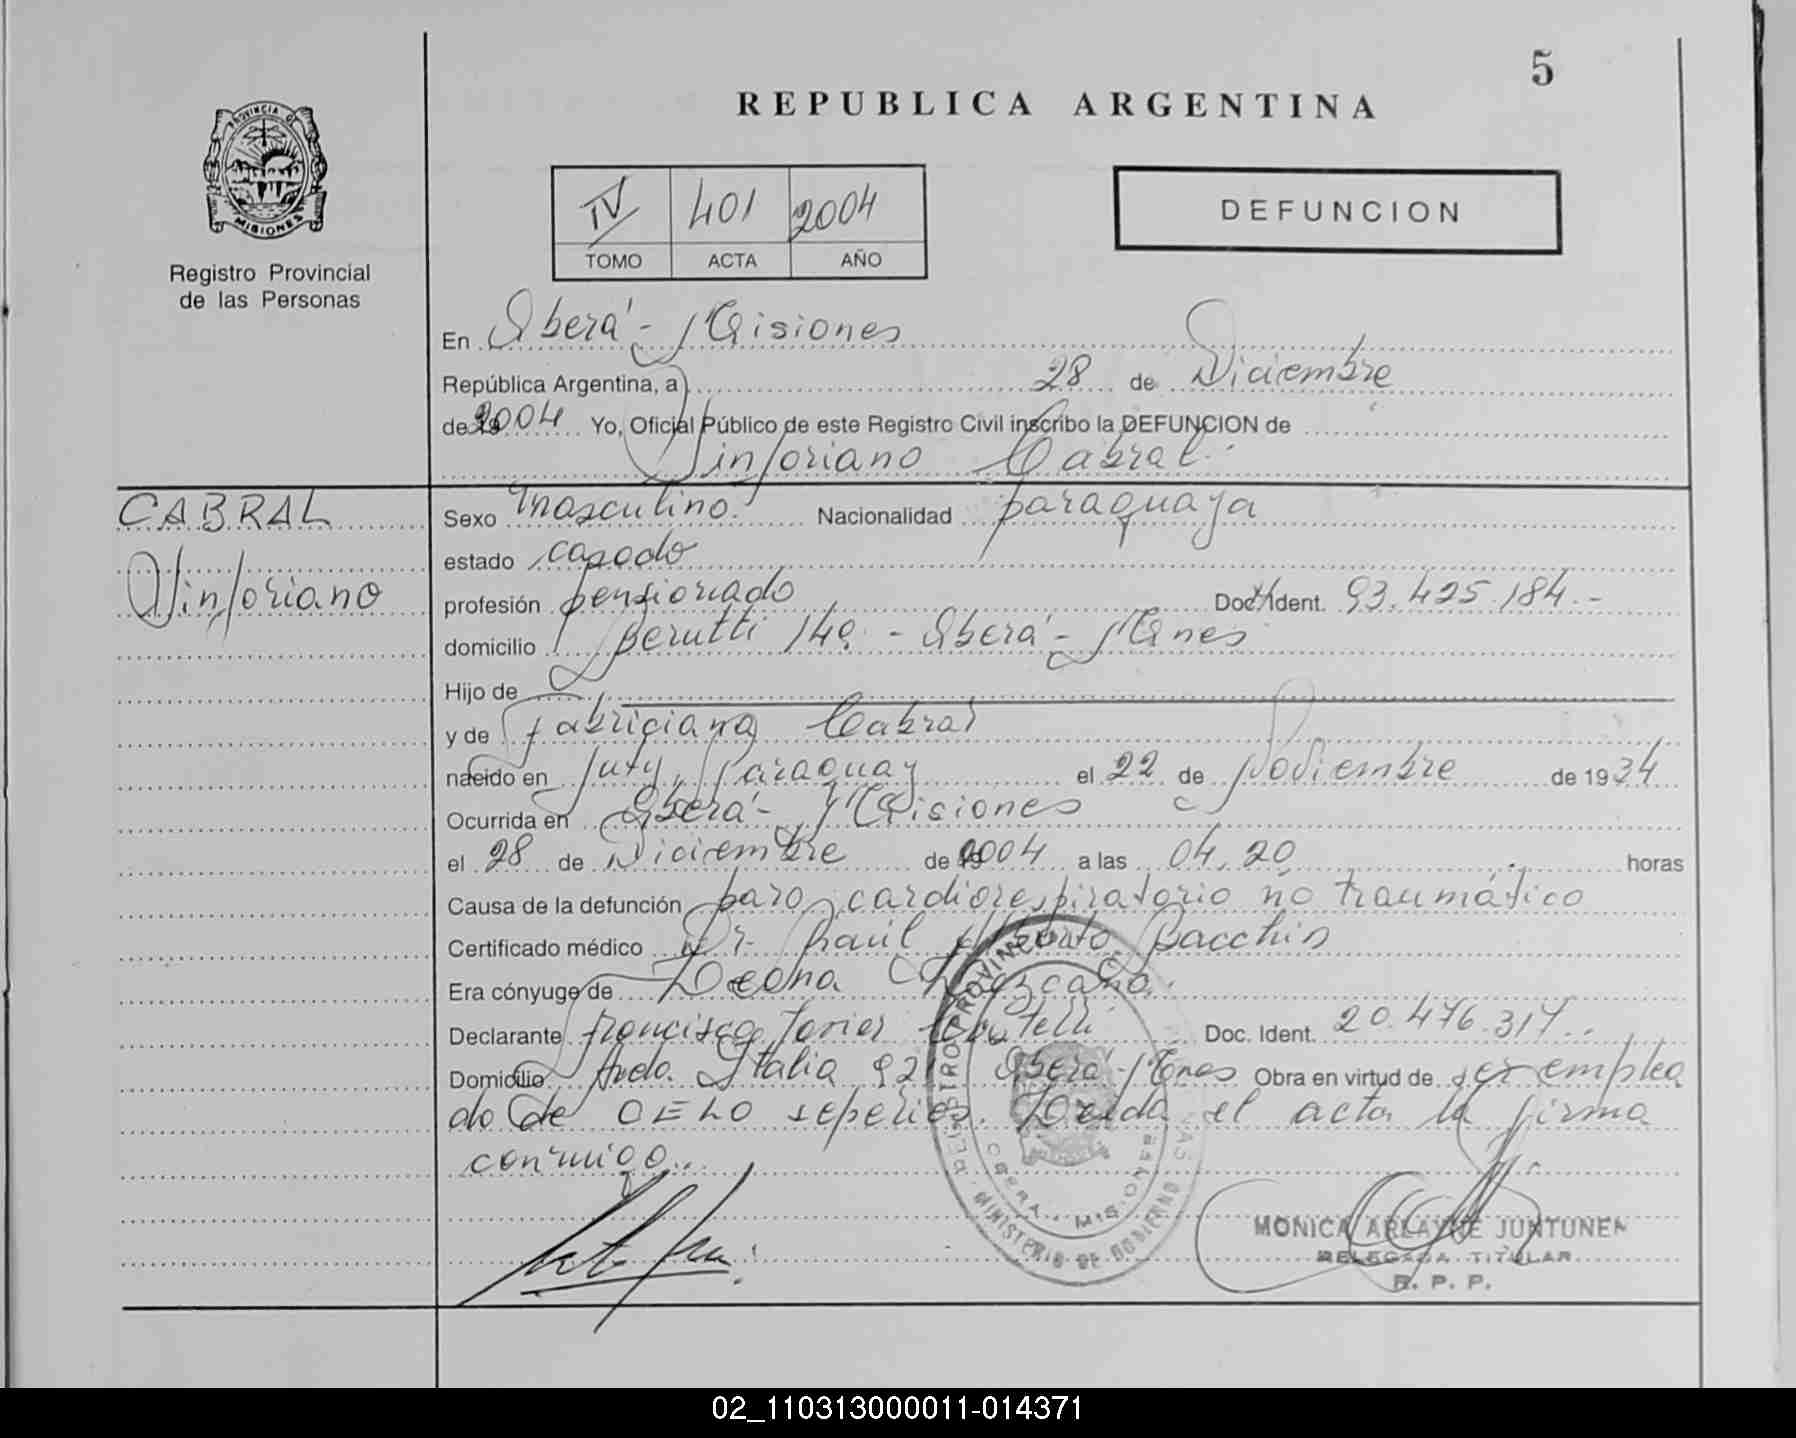 5
REPUBLICA ARGENTINA
PROVINCIA DE
MISIONES
Registro Provincial
de las Personas
IV 401 2004
TOMO ACTA AÑO
DEFUNCION
En Oberá - Misiones
República Argentina, a 28 de Diciembre
de 2004 Yo, Oficial Público de este Registro Civil inscribo la DEFUNCION de
Sinforiano Cabral
CABRAL
Sinforiano
Sexo masculino Nacionalidad paraguaya
estado casado
profesión pensionado Doc. Ident. 93.425.184.-
domicilio Berutti 149 - Oberá - Mnes
Hijo de
y de Fabriciana Cabral
nacido en Yuty, Paraguay el 22 de Noviembre de 1934
Ocurrida en Oberá - Misiones
el 28 de Diciembre de 2004 a las 04,20 horas
Causa de la defunción paro cardiorespiratorio no traumático
Certificado médico Dr. Raúl Bacchin
Era cónyuge de Leona
Declarante Francisco Javier Doc. Ident. 20.476.317.
Domicilio Avda. Italia 921 Oberá - Mnes Obra en virtud de ser emplea
do de CELO sepelios. Leída el acta la firma
conmigo.
REGISTRO PROVINCIAL DE LAS PERSONAS
MINISTERIO DE GOBIERNO
OBERA - MISIONES
MONICA ARLAYNE JUNTUNEN
DELEGADA TITULAR
R. P. P.
02_110313000011-014371